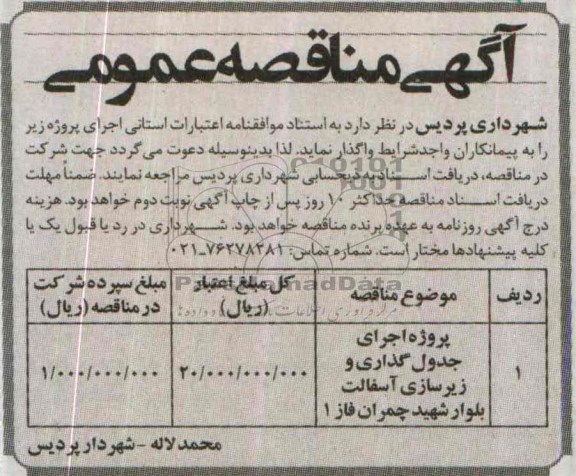 آگهی مناقصه عمومی
شهرداری پردیس در نظر دارد به استناد موافقتنامه اعتبارات استانی اجرای پروژه زیر
را به پیمانکاران واجدشرایط واگذار نماید. لذا بدینوسیله دعوت می گردد جهت شرکت
در مناقصه، دریافت اسناد به ذیحسابی شهرداری پردیس مراجعه نمایند. ضمناً مهلت
دریافت اسناد مناقصه حداکثر ۱۰ روز پس از چاپ آگهی نوبت دوم خواهد بود. هزینه
درج آگهی روزنامه به عهده برنده مناقصه خواهد بود. شهرداری در رد یا قبول یک یا
کلیه پیشنهادها مختار است. شماره تماس: ۷۶۲۷۸۲۸۱-۰۲۱
ردیف موضوع مناقصه کل مبلغ اعتبار (ریال) مبلغ سپرده شرکت در مناقصه (ریال)
۱ پروژه اجرای
جدول گذاری و
زیرسازی آسفالت
بلوار شهید چمران فاز ۱
۲۰/۰۰۰/۰۰۰/۰۰۰ ۱/۰۰۰/۰۰۰/۰۰۰
محمد لاله - شهردار پردیس